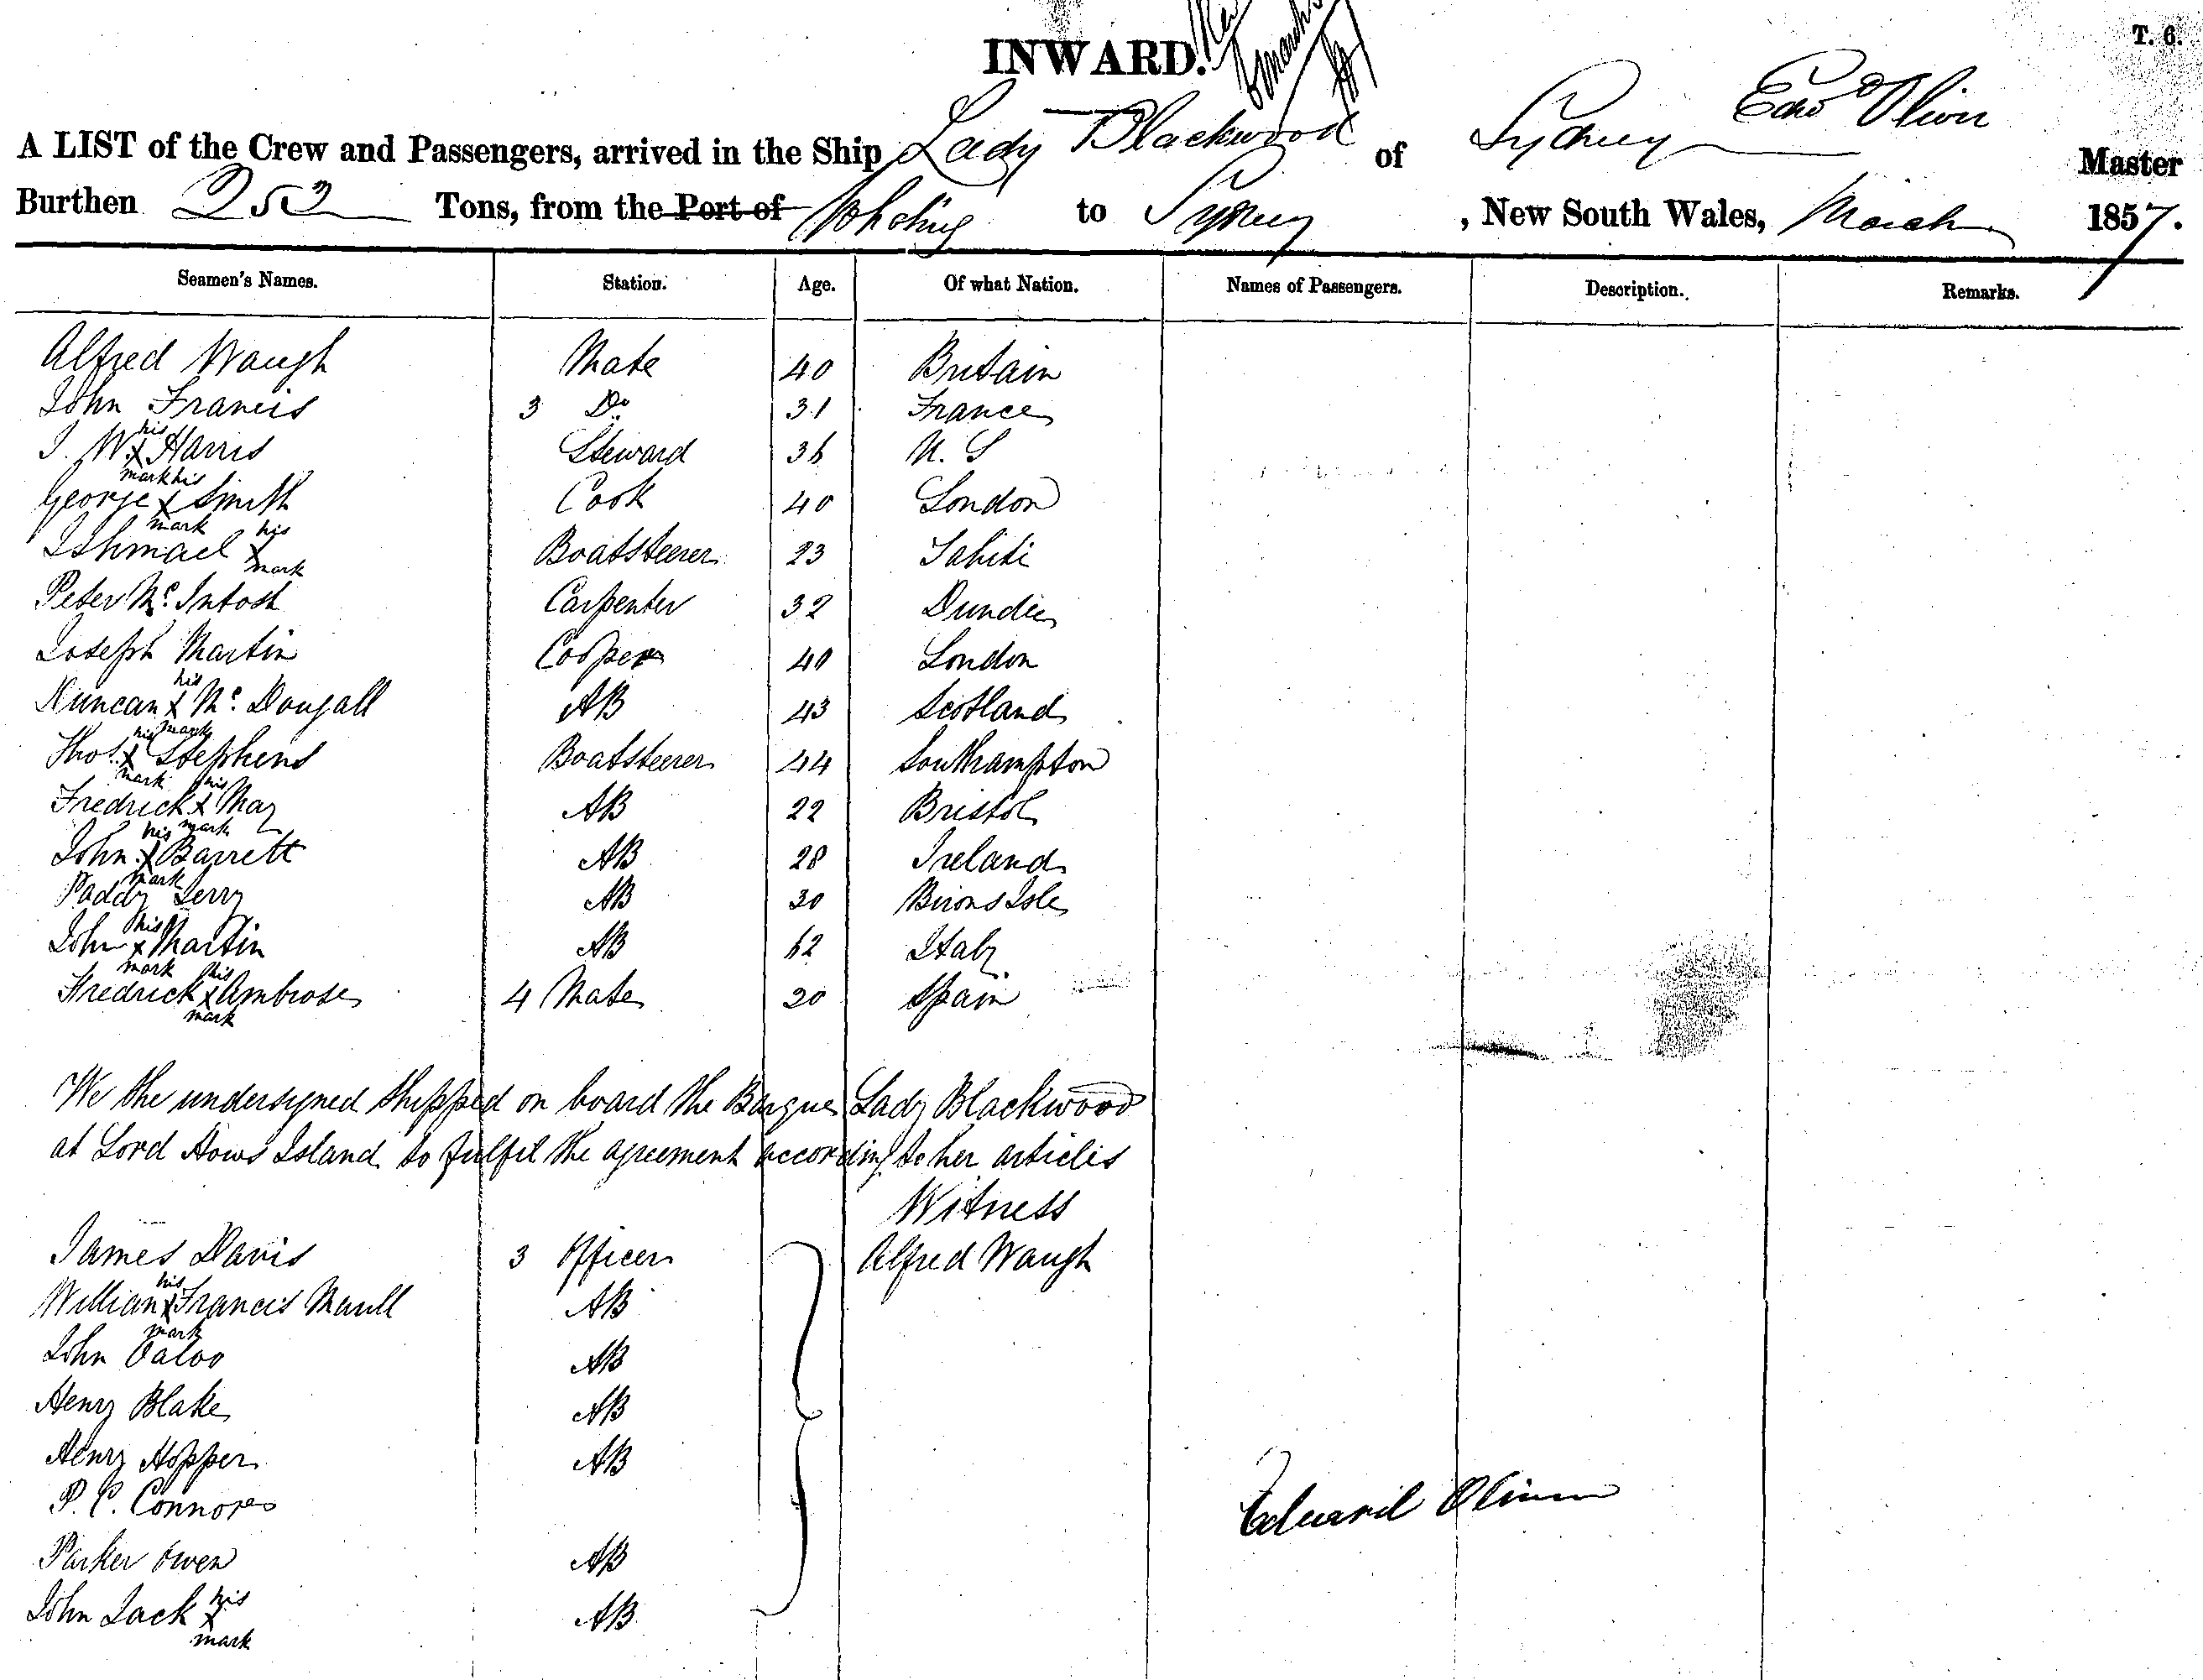 T. 6.
INWARD.
A LIST of the Crew and Passengers, arrived in the Ship Lady Blackwood of Sydney Edwd Oliver Master
Burthen 253 Tons, from the Port of to Sydney, New South Wales, March 1857.
Seamen's Names. Station. Age. Of what Nation. Names of Passengers. Description. Remarks.
Alfred Waugh Mate 40 Britain
John Francis 3 Do 31 France
J. W. his x mark Harris Steward 36 U. S
George his x mark Smith Cook 40 London
Ishmael his x mark Boatsteerer 23 Tahiti
Peter Mc. Intosh Carpenter 32 Dundee
Joseph Martin Cooper 40 London
Duncan his x mark Mc. Dougall AB 43 Scotland
Thos. his x mark Stephens Boatsteerer 44 Southampton
Fredrick his x mark May AB 22 Bristol
John his x mark Barrett AB 28 Ireland
Paddy Jerry AB 30 Birons Isle
John his x mark Martin AB 62 Italy
Fredrick his x mark Ambrose 4 Mate 20 Spain
We the undersigned shipped on board the Barque Lady Blackwood
at Lord Hows Island to fulfil the agreement according to her articles
Witness
James Davis 3 Officer Alfred Waugh
William his x mark Francis Maull AB
John AB
Henry Blake AB
Henry Hopper AB
P. C. Connors
Parker Owen AB
John Jack his x mark AB
Edward Oliver